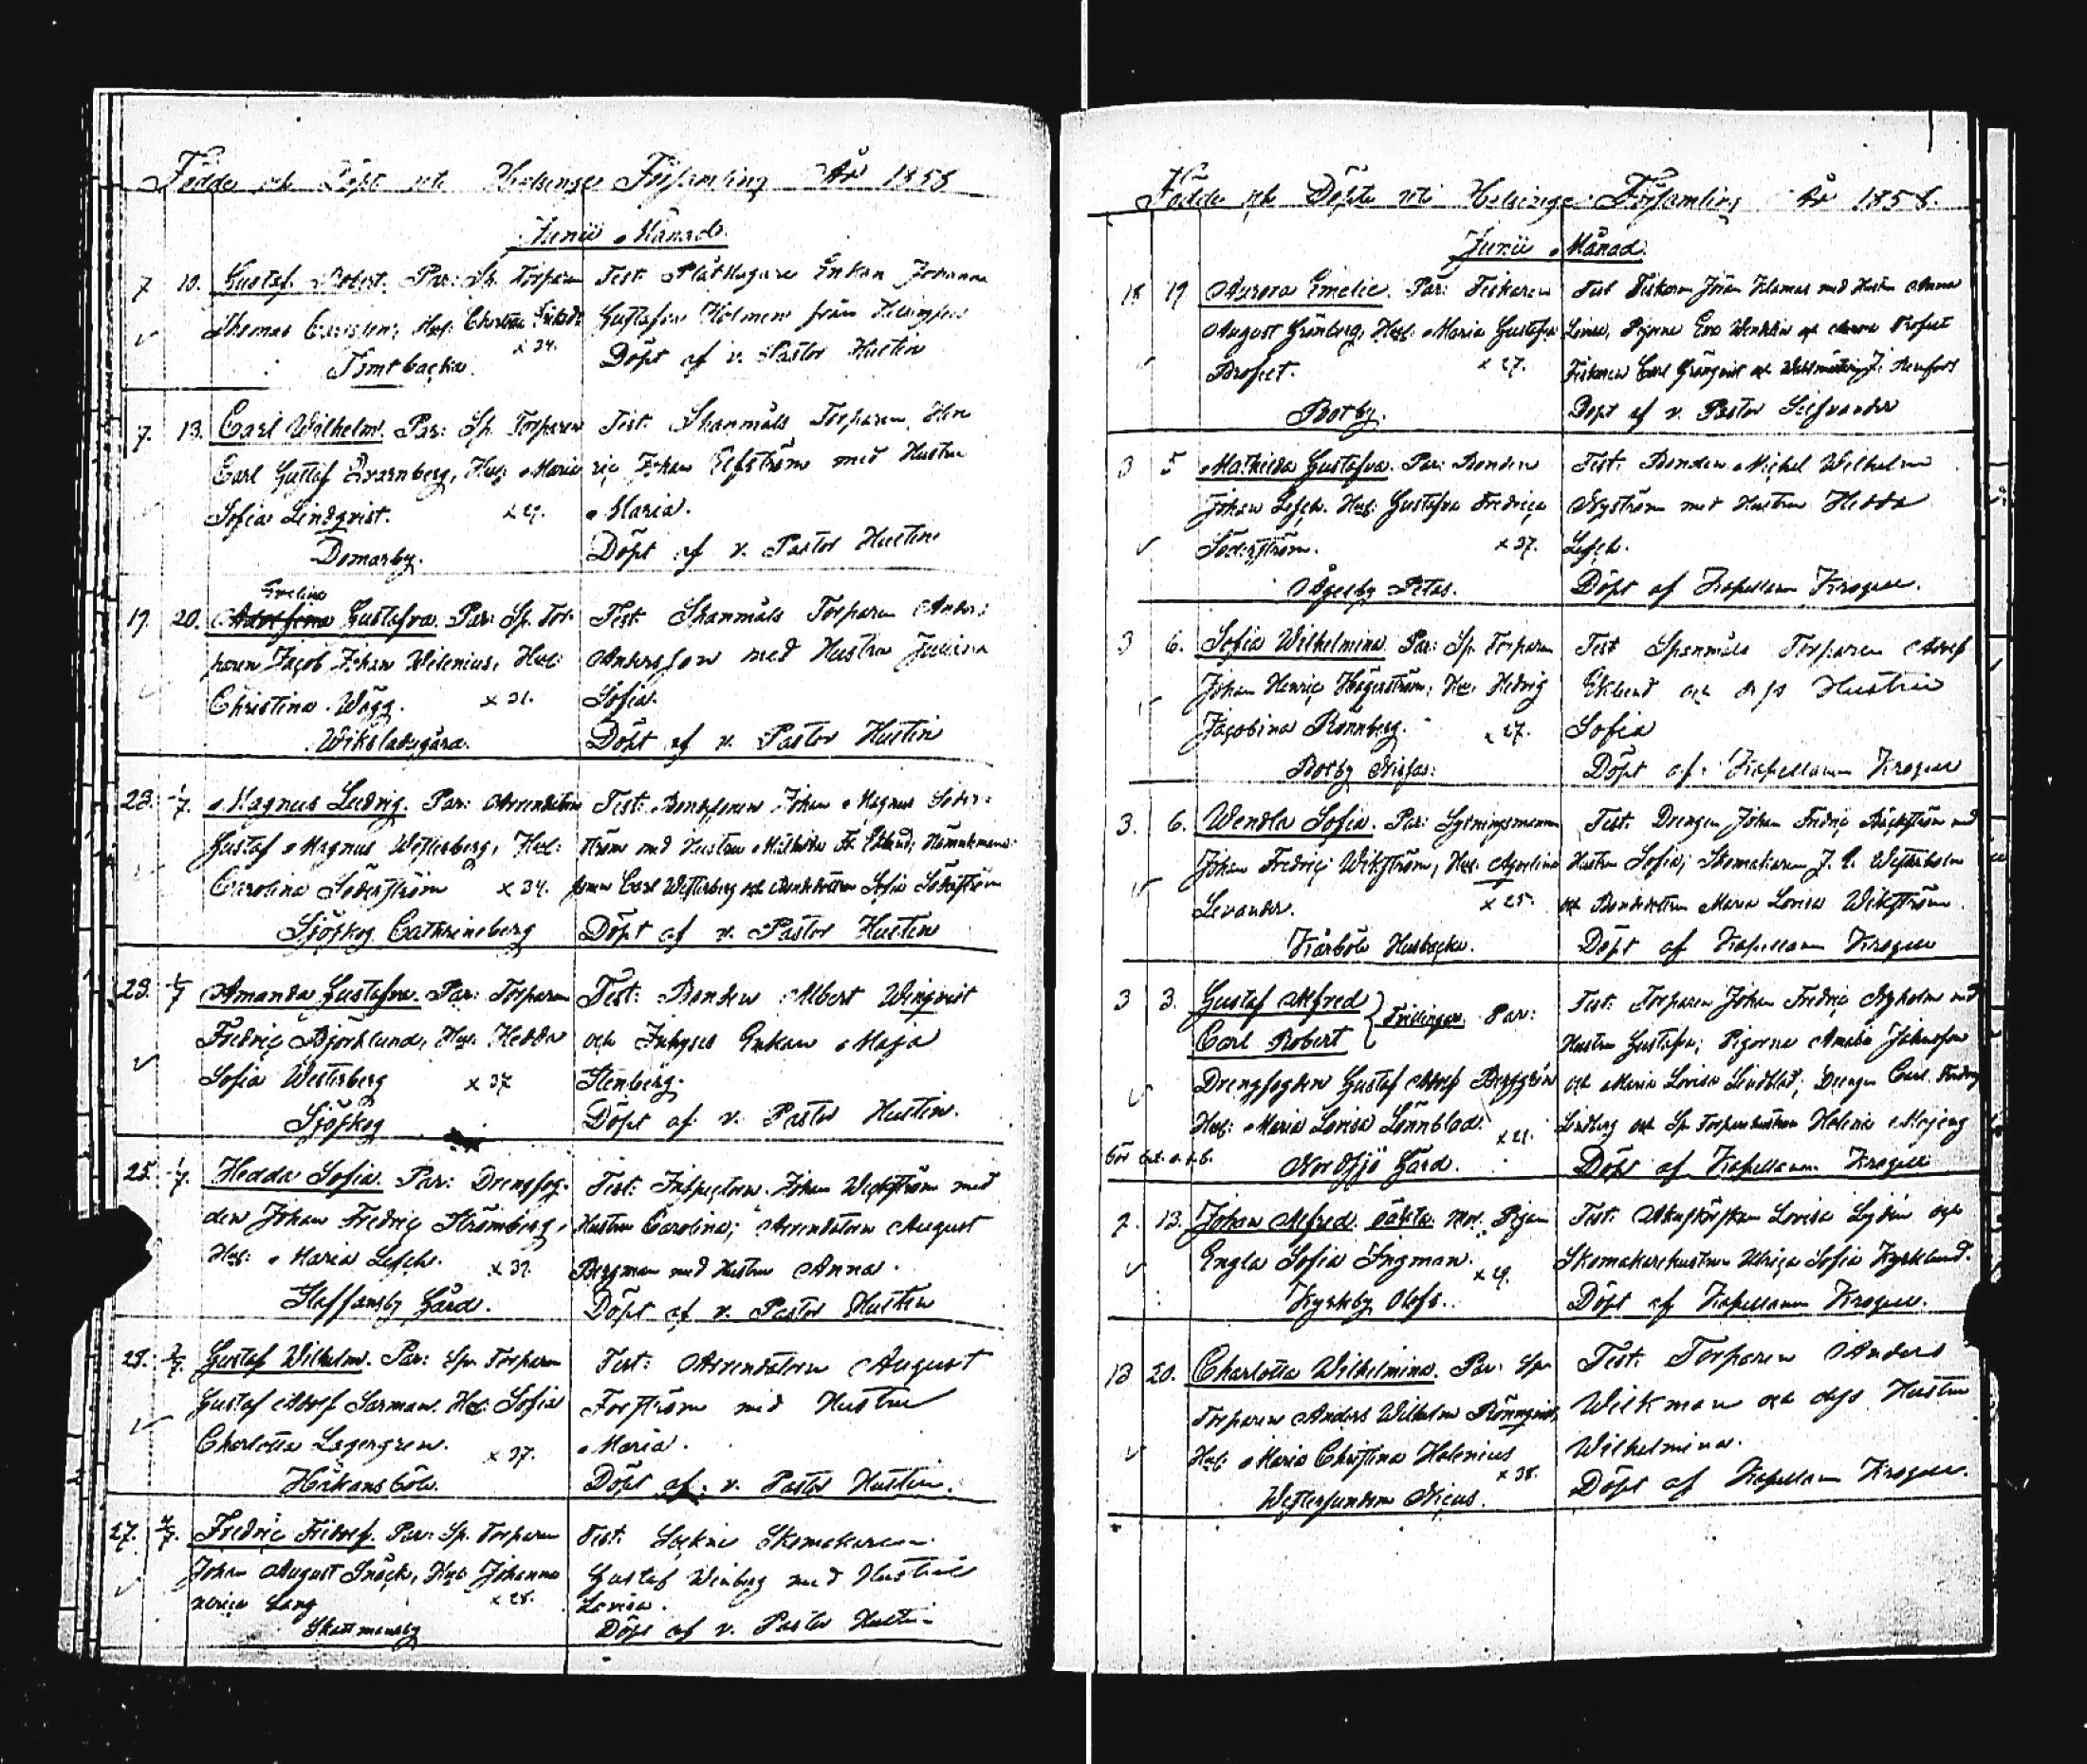 Födde och Döpt uti Helsinge Församling År 1858
Junii Månad.
7 10. Gustaf Robert. Par: Sp. Torparen
Thomas Hus:
x 34.
Tomtbacka.
Test: Enkan Johanna
Gustafva Holmen från Helsingfors
Döpt af v. Pastor Hustin
7. 13. Carl Wilhelm. Par: Sp. Torparen
Carl Gustaf Qvarnberg, Hus: Maria
Sofia Lindqvist. x 29.
Domarby.
Test: Skanmåls Torparen Hen
ric Johan Elfström med Hustru
Maria.
Döpt af v. Pastor Hustin
Evelina
17. 20. Adolfina Gustafva. Par: Sp. Tor-
paren Jacob Johan Wilenius, Hus:
Christina Wägg. x 31.
Wiksladugård.
Test: Skanmåls Torparen Anders
Andersson med Hustru Juliana
Sofia.
Döpt af v. Pastor Hustin
23. 1/7. Magnus Ludvig. Par: Arrendatorn
Gustaf Magnus Westerberg, Hus:
Carolina Söderström x 34.
Sjöskog Cathrineberg
Test: Bondesonen Johan Magnus Söder-
ström med Hustru Mathilda Nämndemans-
sonen Carl Westerberg och Bondedottren Sofia Söderström
Döpt af v. Pastor Hustin
23. 1/7 Amanda Gustafva. Par: Torparen
Fredric Björklund, Hus: Hedda
Sofia Westerberg x 37
Sjöskog
Test: Bonden Albert Winqvist
och Inhyses Enkan Maja
Stenberg.
Döpt af v. Pastor Hustin.
25. 1/7. Hedda Sofia. Par: Drengfog-
den Johan Fredric Strömberg,
Hus: Maria Lesch. x 39.
Staffansby Gård.
Test: Inspectorn Johan Weckström med
Hustru Carolina; Arrendatorn August
Bergman med Hustru Anna.
Döpt af v. Pastor Hustin
25. Gustaf Wilhelm. Par: Sp. Torparen
Gustaf Adolf Sarman. Hus: Sofia
Charlotta Lagergren. x 37.
Håkansböle.
Test: Arrendatorn August
Forström med Hustru
Maria.
Döpt af v. Pastor Hustin.
27. Fredric Fridolf. Par: Sp. Torparen
Johan August Hus: Johanna
Lang x 28.
Skattmansby
Test: Sockne Skomakaren
Gustaf Winberg med Hustru
Lovisa.
Döpt af v. Pastor Hustin
Födde och Döpte uti Helsinge Församling År 1858.
Junii Månad.
18 19 Aurora Emelie. Par: Fiskaren
August Grönberg, Hus: Maria Gustafva
Brofelt. x 27.
Botby.
Test: Fiskaren Johan med Hustru Anna
Lovisa, Pigorna Eva och
Fiskaren Carl Grönqvist och
Döpt af v. Pastor
3 5 Mathilda Gustafva. Par: Bonden
Johan Lesch. Hus: Gustafva Fredrica
Söderström. x 37.
Åggelby Petas.
Test: Bonden Michel Wilhelm
Nyström med Hustru Hedda
Lesch.
Döpt af Kapellanen Krogell.
3 6. Sofia Wilhelmina. Par: Sp. Torparen
Johan Henric Hägerström, Hus: Hedvig
Jacobina Rönnberg. x 27.
Botby Nissas.
Test: Skanmåls Torparen Adolf
Eklund och dess Hustru
Sofia
Döpt af Kapellanen Krogell
3. 6. Wendla Sofia. Par: Lytningsmannen
Johan Fredric Wikström, Hus: Agvelina
Levander. x 25.
Kårböle Husbacka.
Test: Drengen Johan Fredric Bäckström med
Hustru Sofia; Skomakaren J. E. Westerholm
och Bondedottren Maria Lovisa Wikström.
Döpt af Kapellanen Krogell
3 3. Gustaf Alfred
Carl Robert } Tvillingar. Par:
Drengfogden Gustaf Adolf Berggren
Hus: Maria Lovisa Lönnblad. x 21.
Nordsjö Gård.
Test: Torparen Johan Fredric Nyholm med
Hustru Gustafva; Pigorna Amalia Johansson
och Maria Lovisa Lindblad; Drengen Carl Fredric
Lindberg och Sp Torparehustrun Helena
Döpt af Kapellanen Krogell
7. 13. Johan Alfred. oäkta. Mod. Pigan
Engla Sofia Ingman. x 29.
Kyrkby Olofs.
Test: Lovisa Lydén och
Skomakarehustrun Ulrica Sofia Kyrklund.
Döpt af Kapellanen Krogell.
13 20. Charlotta Wilhelmina. Par: Sp.
Torparen Anders Wilhelm Rönnqvist,
Hus: Maria Christina Helenius
x 38.
Westersundom Nicus.
Test: Torparen Anders
Wilkman och dess Hustru
Wilhelmina.
Döpt af Kapellanen Krogell.